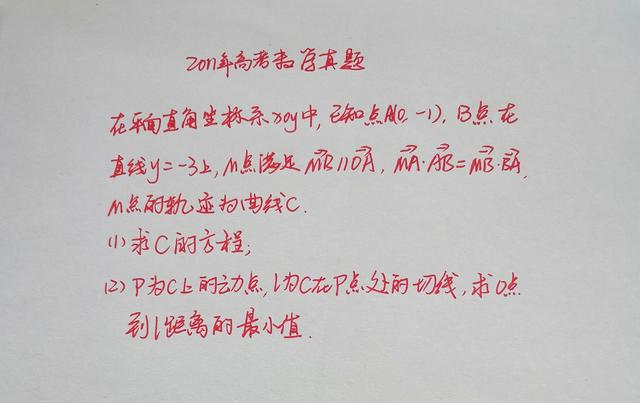 2011年高考数学真题
在平面直角坐标系xoy中, 已知点A(0, -1), B点在
直线y=-3上, M点满足 MB∥OA, MA·AB=MB·BA,
M点的轨迹为曲线C.
(1) 求C的方程;
(2) P为C上的动点, l为C在P点处的切线, 求O点
到l距离的最小值.